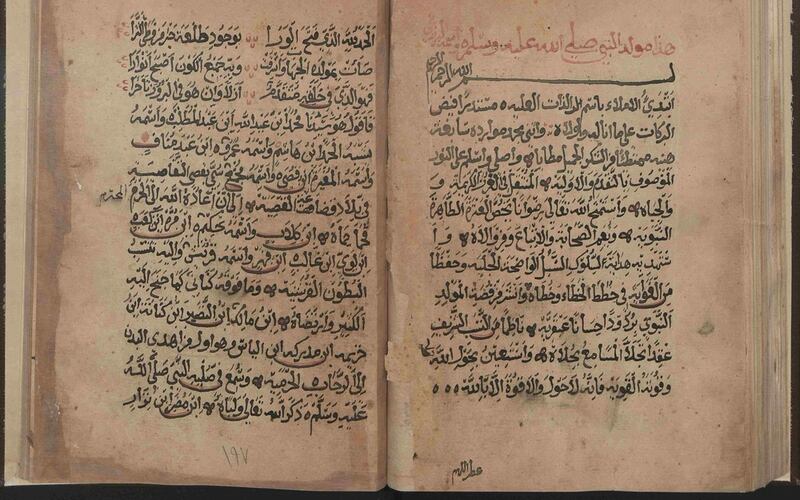 هذا مولد النبي صلى الله عليه وسلم
بسم الله الرحمن الرحيم
ابتدئ الاملاء باسم الذات العلية مستدرا فيض
البركات على ما اناله واولاه واثني بحمد موارده سايغة
هنية ممتطيا من الشكر الجميل مطاياه واصلي واسلم على النور
الموصوف بالتقدم والاولية المنتقل في الغرر الكريمة و
والجباه واستمنح الله تعالى رضوانا يخص العترة الطاهرة
النبوية ويعم الصحابة والاتباع ومن والاه وا
ستجديه هداية لسلوك السبل الواضحة الجلية وحفظا
من الغواية في خطط الخطاء وخطاه وانشر من قصة المولد
النبوي برودا حسانا عبقرية ناظما من النسب الشريف
عقدا تحلى المسامع بحلاه واستعين بحول الله
وقوته القوية فانه لا حول ولا قوة الا بالله
عطر اللهم
الحمد لله الذي فتح الورا بوجود طلعة
الكون
فهو الذي في خلقه متقدم
فاقول هو سيدنا محمد ابن عبد الله ابن عبد المطلب واسمه
شيبة الحمد ابن هاشم واسمه عمرو ابن عبد مناف
واسمه المغيرة ابن قصي واسمه مجمع سمي بقصي لتقاصيه
في بلاد قضاعة القصية الى ان اعاده الله الى الحرم المحترم
فحمى حماه ابن كلاب واسمه حكيم ابن مرة ابن كعب
ابن لوي ابن غالب ابن فهر واسمه قريش واليه تنسب
البطون القرشية وما فوقه كناني كما جنح اليه
الكثير وارتضاه ابن مالك ابن النضر ابن كنانة ابن
خزيمة ابن مدركة ابن الياس وهو اول من اهدى البدن
الى الرحاب الحرمية وسمع في صلبه النبي صلى الله
عليه وسلم ذكر الله تعالى ولباه ابن مضر ابن نزار
١٩٧